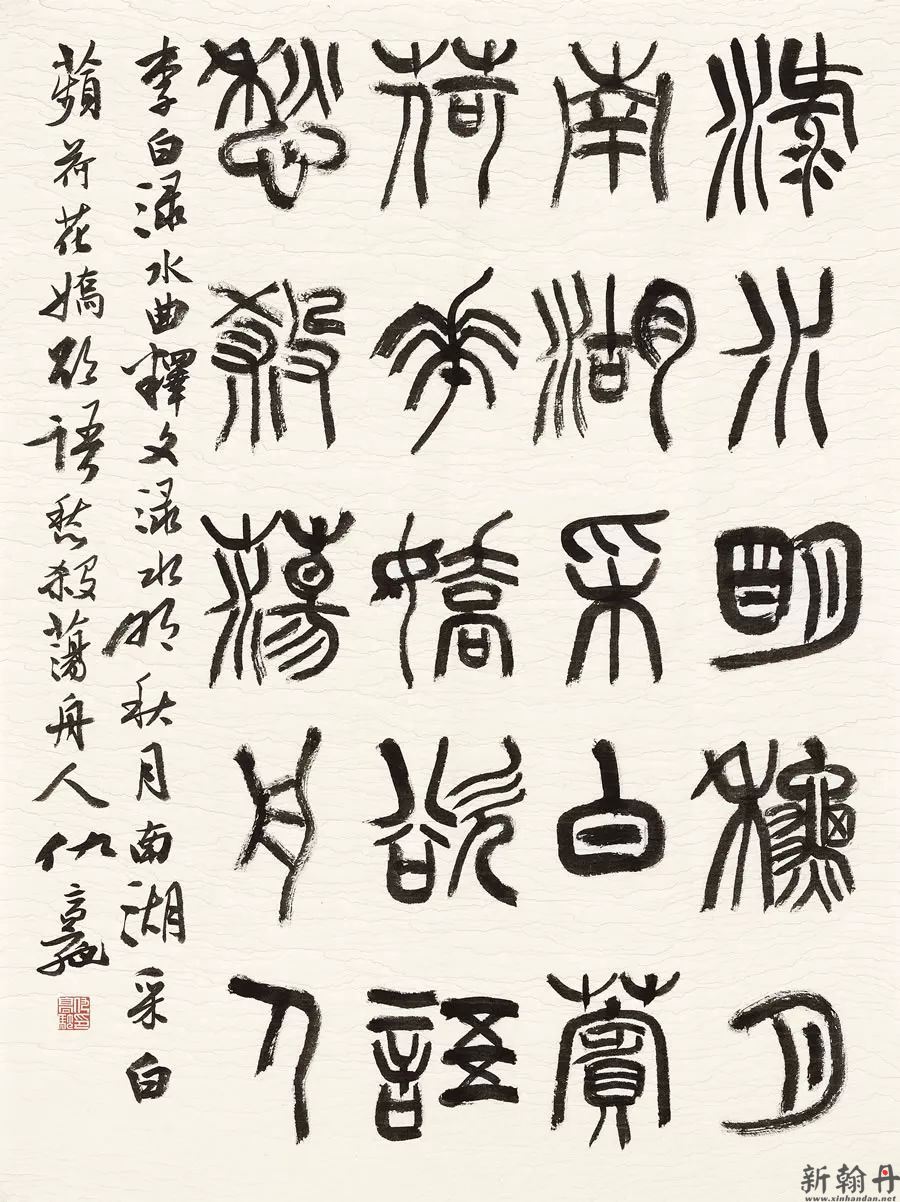 渌水明龝月
南湖采白薲
荷花嬌欲語
愁殺蕩舟人
李白渌水曲釋文渌水明秋月南湖采白
蘋荷花嬌欲語愁殺蕩舟人仇高馳
仇印高馳
新翰丹
www.xinhandan.net